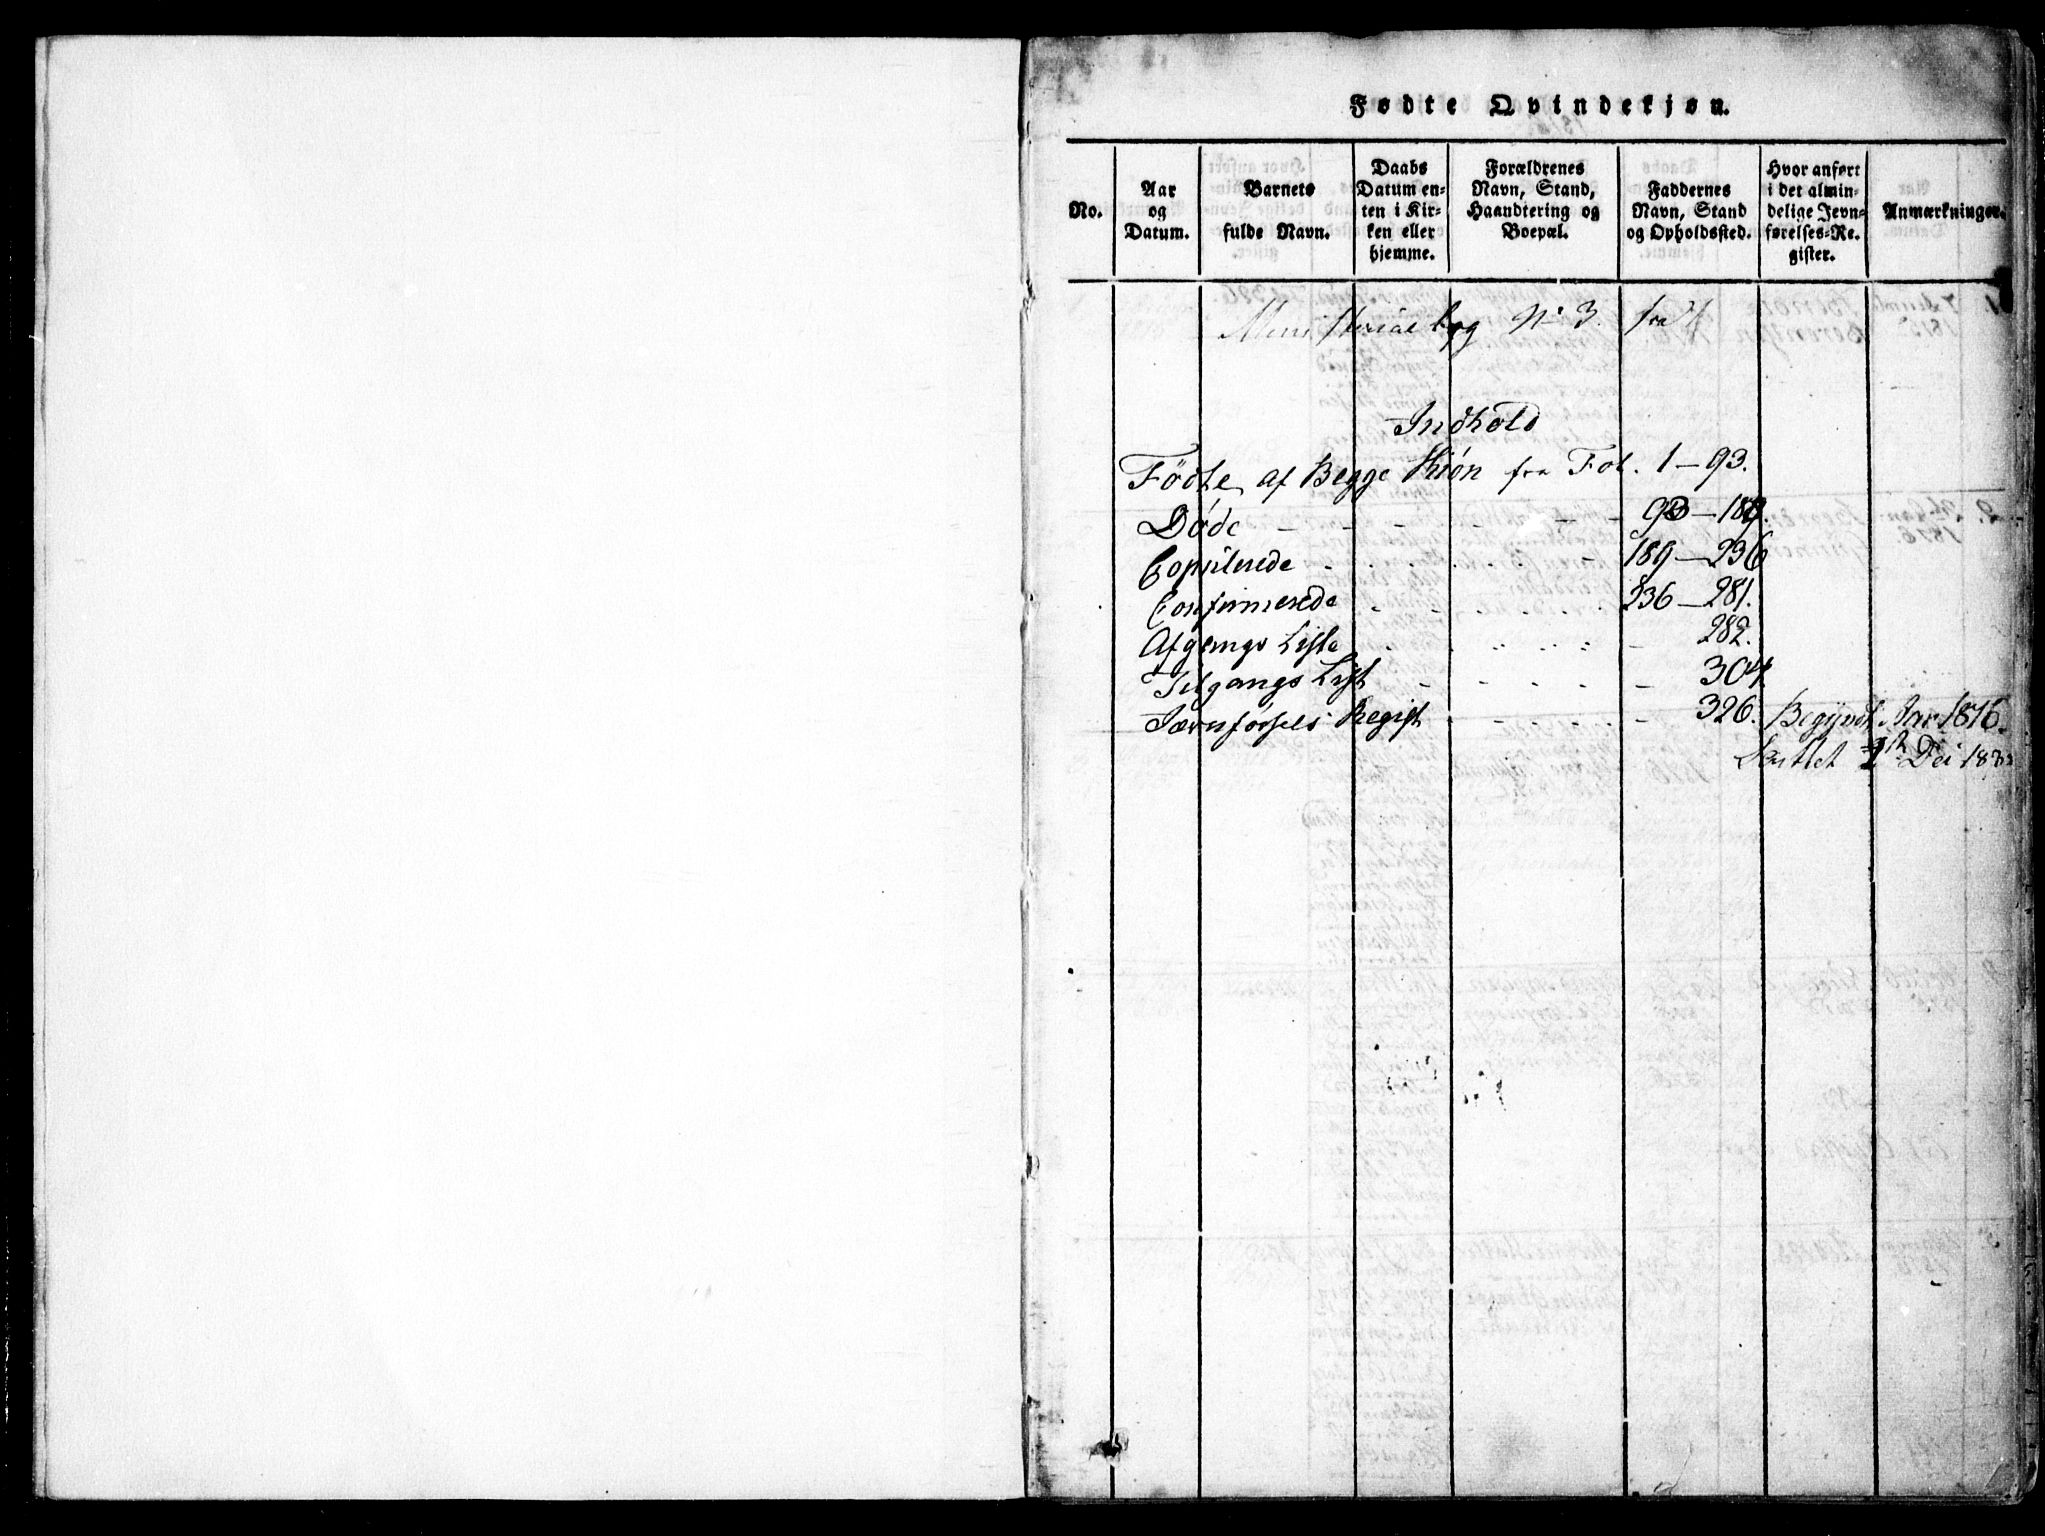 Fødte Qvindekjøn.
No.
Aar
og
Datum.
Barnets
fulde Navn.
Daabs
Datum en-
ten i Kir-
ken eller
hjemme.
Forældrenes
Navn, Stand,
Haandtering og
Boepæl.
Faddernes
Navn, Stand
og Opholdssted.
Hvor anført
i det almin-
delige Jevn-
førelses-Re-
gister.
Anmærkninger.
Ministerial bog No 3. fra
Indhold
Födte af Begge Kiøn fra Fol. 1 — 93.
Døde 93 — 189.
Copulerede 189 — 236
Confirmerede 236 — 281.
Afgangs Liste 282.
Tilgangs List 304.
Jævnførsels Regist 326. Begyndt Aar 1816.
Sluttet